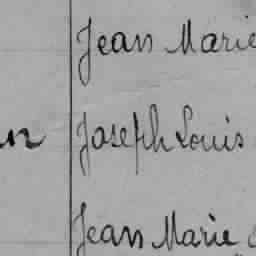 Jean Marie
Joseph Louis
Jean Marie